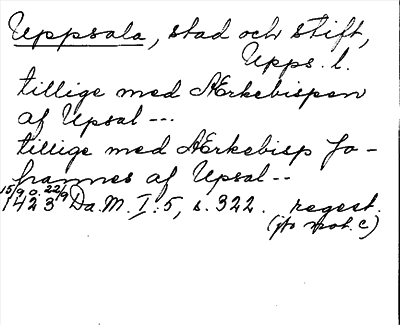 Uppsala, stad och stift,
Upps. l.
tillige med Ærkebispen
af Upsal ---
tillige med Ærkebisp Jo-
hannes af Upsal --
15/9 o. 22/9
1423 Da. M. I: 5, s. 322. regest.
(jfr not. c)